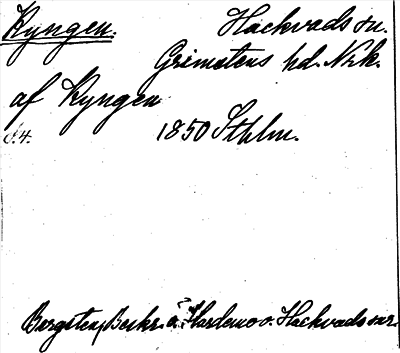 Kyngen. Hackvads sn.
Grimstens hd. Nrk.
af Kyngen
s.4. 1850 Sthlm.
Bergsten, Beskr. ö. Hardemo o. Hackvads snr.